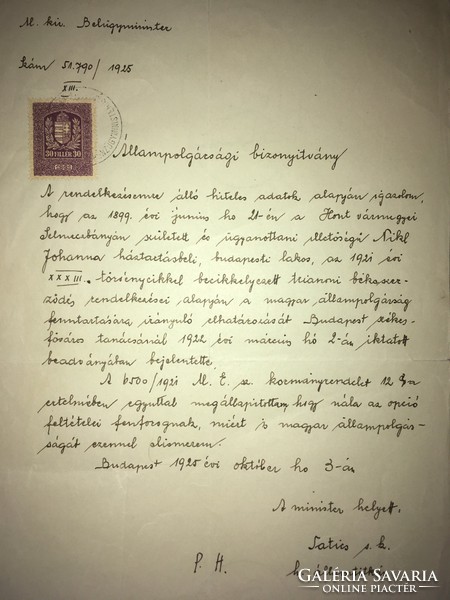 M. kir. Belügyminister
Szám 51.790/1925
XIII.
30 FILLÉR 30
Állampolgársági bizonyitvány
A rendelkezésemre álló hiteles adatok alapján igazolom,
hogy az 1899. évi junius hó 21-én a Hont vármegyei
Selmecbányán született és ugyanottani illetőségü Nikl
Johanna háztartásbeli, budapesti lakos, az 1921 évi
XXXIII. törvénycikkel becikkelyezett trianoni békeszer-
ződés rendelkezései alapján a magyar állampolgárság
fenntartására irányuló elhatározását Budapest székes-
főváros tanácsánál 1922 évi március hó 2-án iktatott
beadványában bejelentette.
A 6500/1921 M. E. sz. kormányrendelet 12 §-a
értelmében egyuttal megállapitottam, hogy nála az opció
feltételei fenforognak, miért is magyar állampolgár-
ságát ezennel elismerem.
Budapest 1925 évi október hó 3-án
A minister helyett.
Tatics s. k.
P. H.
GALÉRIA SAVARIA
ONLINE PIACTÉR